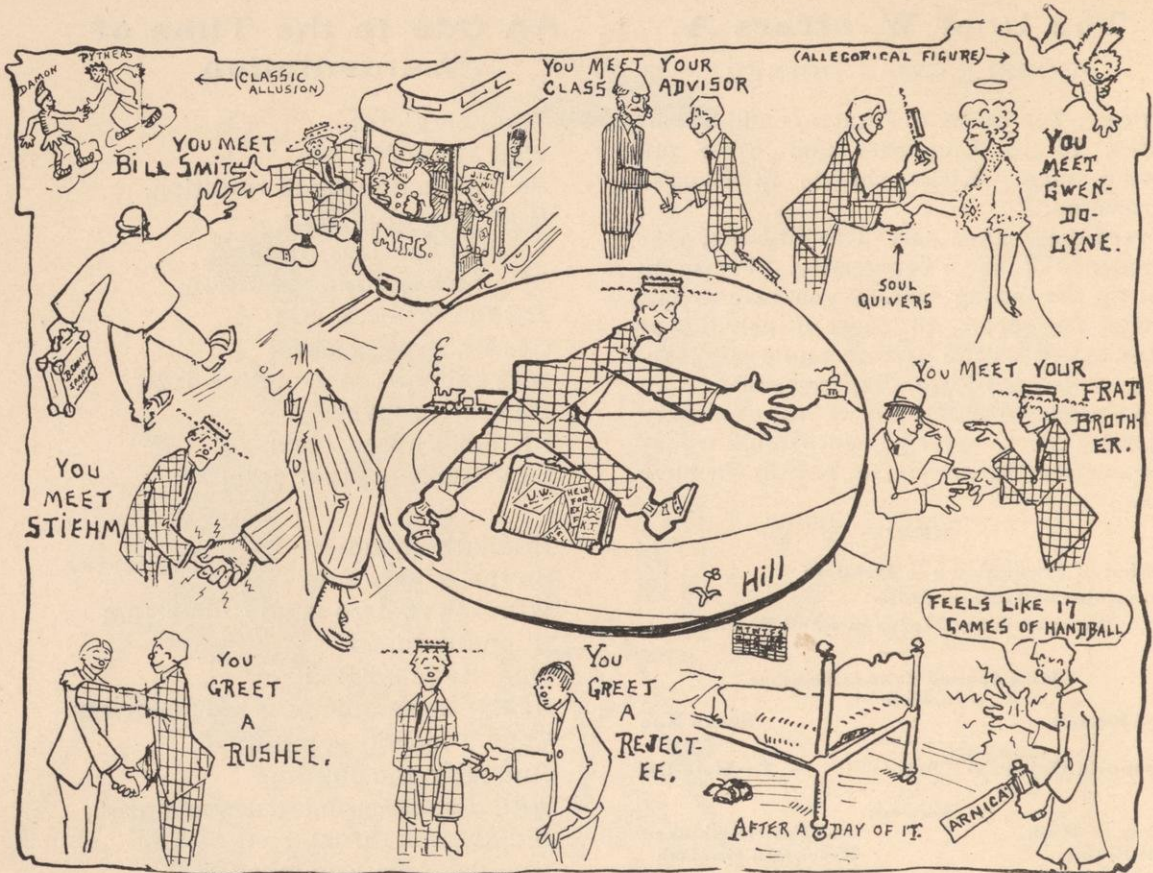 DAMON
PYTHEAS
(CLASSIC
ALLUSION)
YOU MEET
BILL SMITH
M.T.C.
YOU MEET YOUR
CLASS ADVISOR
(ALLEGORICAL FIGURE)
YOU
MEET
GWEN-
DO-
LYNE.
SOUL
QUIVERS
YOU
MEET
STIEHM
U.W.
HELP
FOR
EX
Hill
YOU MEET YOUR
FRAT
BROTH-
ER.
YOU
GREET
A
RUSHEE.
YOU
GREET
A
REJECT-
EE.
AFTER A DAY OF IT.
FEELS LIKE 17
GAMES OF HANDBALL
ARNICA